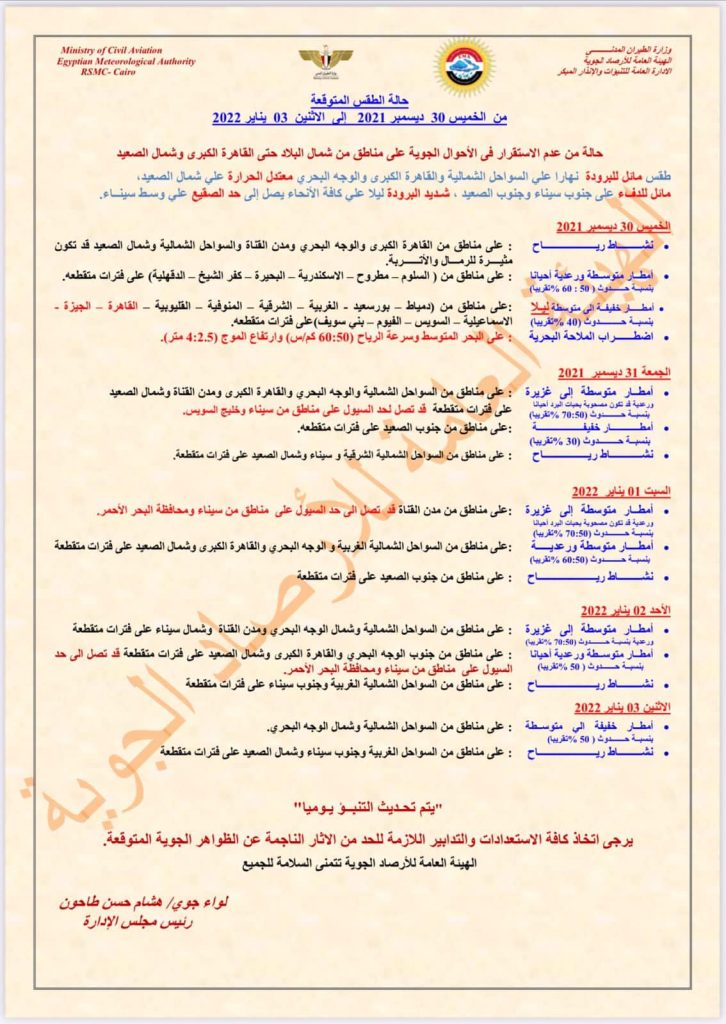 Ministry of Civil Aviation
Egyptian Meteorological Authority
RSMC- Cairo
وزارة الطيران المدنـــــي
الهيئة العامة للأرصاد الجوية
الادارة العامة للتنبؤات والإنذار المبكر
حالة الطقس المتوقعة
من الخميس 30 ديسمبر 2021 إلى الاثنين 03 يناير 2022
حالة من عدم الاستقرار فى الأحوال الجوية على مناطق من شمال البلاد حتى القاهرة الكبرى وشمال الصعيد
طقس مائل للبرودة نهارا علي السواحل الشمالية والقاهرة الكبرى والوجه البحري معتدل الحرارة علي شمال الصعيد،
مائل للدفء على جنوب سيناء وجنوب الصعيد ، شديد البرودة ليلا علي كافة الأنحاء يصل إلى حد الصقيع علي وسط سيناء.
الخميس 30 ديسمبر 2021
• نشـــاط ريـــــاح : على مناطق من القاهرة الكبرى والوجه البحري ومدن القناة والسواحل الشمالية وشمال الصعيد قد تكون
مثيــرة للرمال والأتــربة.
• أمطار متوسطة ورعدية أحيانا : على مناطق من ( السلوم – مطروح – الاسكندرية – البحيرة – كفر الشيخ – الدقهلية) على فترات متقطعه.
بنسبة حـــدوث (50 : 60 %تقريبا)
• أمطـار خفيفة الي متوسطة ليلا :على مناطق من (دمياط – بورسعيد - الغربية – الشرقية – المنوفية – القليوبية – القاهرة - الجيزة -
بنسبة حـــدوث (40 %تقريبا) الاسماعيلية – السويس – الفيوم – بني سويف)على فترات متقطعه.
• اضطراب الملاحة البحرية : على البحر المتوسط وسرعة الرياح (60:50 كم/س) وارتفاع الموج (4:2.5 متر).
الجمعة 31 ديسمبر 2021
• أمطـار متوسطة إلى غزيرة : على مناطق من السواحل الشمالية والوجه البحري والقاهرة الكبرى ومدن القناة وشمال الصعيد
ورعدية قد تكون مصحوبة بحبات البرد أحيانا على فترات متقطعة قد تصل لحد السيول على مناطق من سيناء وخليج السويس.
بنسبة حـــدوث (70:50 %تقريبا)
• أمطـــار خفيفـــــة :على مناطق من جنوب الصعيد على فترات متقطعه.
بنسبة حـــدوث (30 %تقريبا)
• نشـــاط ريـــــاح : على مناطق من السواحل الشمالية الشرقية و سيناء وشمال الصعيد على فترات متقطعة.
السبت 01 يناير 2022
• أمطـار متوسطة إلى غزيرة : على مناطق من مدن القناة قد تصل الى حد السيول على مناطق من سيناء ومحافظة البحر الأحمر.
ورعدية قد تكون مصحوبة بحبات البرد أحيانا
بنسبة حـــدوث (70:50 %تقريبا)
• أمطـار متوسطة ورعديـــة : على مناطق من السواحل الشمالية الغربية و الوجه البحري والقاهرة الكبرى وشمال الصعيد على فترات متقطعة
بنسبة حـــدوث (60:50 %تقريبا)
• نشـــاط ريـــــاح : على مناطق من جنوب الصعيد على فترات متقطعة
الأحد 02 يناير 2022
• أمطـار متوسطة إلى غزيرة : على مناطق من السواحل الشمالية وشمال الوجه البحري ومدن القناة وشمال سيناء على فترات متقطعة
ورعدية بنسبة حـــدوث (70:50 %تقريبا)
• أمطـار متوسطة ورعدية أحيانا : على مناطق من جنوب الوجه البحري والقاهرة الكبرى وشمال الصعيد على فترات متقطعة قد تصل الى حد
بنسبة حـــدوث ( 50 %تقريبا) السيول على مناطق من سيناء ومحافظة البحر الأحمر.
• نشـــاط ريـــــاح : على مناطق من السواحل الشمالية الغربية وجنوب سيناء على فترات متقطعة
الاثنين 03 يناير 2022
• أمطار خفيفة الي متوسطة : على مناطق من السواحل الشمالية وشمال الوجه البحري.
بنسبة حـــدوث ( 50 %تقريبا)
• نشـــاط ريـــــاح : على مناطق من السواحل الغربية وجنوب سيناء وشمال الصعيد على فترات متقطعة
"يتم تحـديث التنبـؤ يـوميا"
يرجى اتخاذ كافة الاستعدادات والتدابير اللازمة للحد من الاثار الناجمة عن الظواهر الجوية المتوقعة.
الهيئة العامة للأرصاد الجوية تتمنى السلامة للجميع
لواء جوي/ هشام حسن طاحون
رئيس مجلس الإدارة
الهيئة العامة للأرصاد الجوية